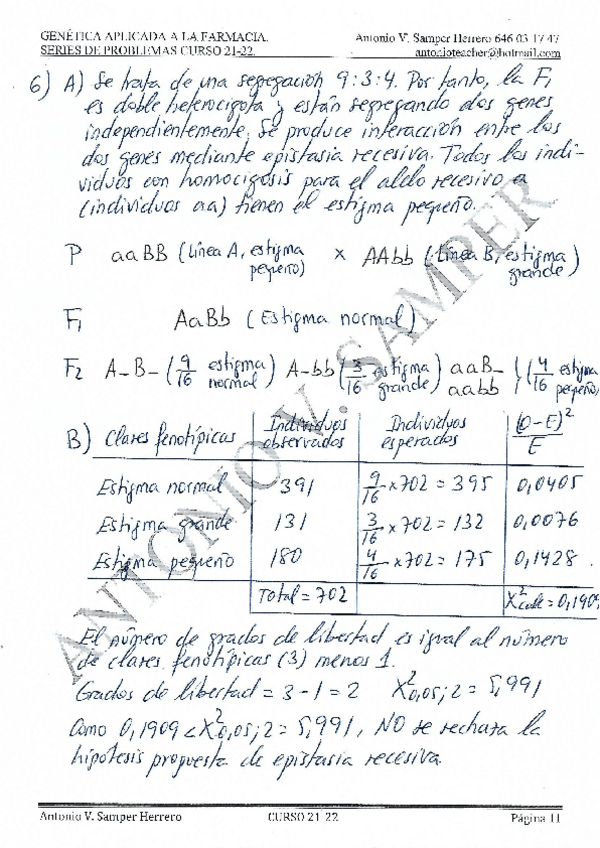 GENÉTICA APLICADA A LA FARMACIA. Antonio V. Samper Herrero 646 03 17 47
SERIES DE PROBLEMAS CURSO 21-22. antonioteacher@hotmail.com
6) A) Se trata de una segregación 9:3:4. Por tanto, la F1
es doble heterocigota y están segregando dos genes
independientemente. Se produce interacción entre los
dos genes mediante epistasia recesiva. Todos los indi-
viduos con homocigosis para el alelo recesivo a
(individuos aa) tienen el estigma pequeño.
P aaBB (Línea A, estigma pequeño) x AAbb (Línea B, estigma grande)
F1 AaBb (Estigma normal)
F2 A-B- (9/16 estigma normal) A-bb (3/16 estigma grande) aaB- aabb } (4/16 estigma pequeño)
B) Clases fenotípicas Individuos observados Individuos esperados (O-E)²/E
Estigma normal 391 9/16 x 702 = 395 0,0405
Estigma grande 131 3/16 x 702 = 132 0,0076
Estigma pequeño 180 4/16 x 702 = 175 0,1428
Total = 702 X²calc = 0,1909
El número de grados de libertad es igual al número
de clases fenotípicas (3) menos 1.
Grados de libertad = 3-1 = 2 X²0,05;2 = 5,991
Como 0,1909 < X²0,05;2 = 5,991, NO se rechaza la
hipótesis propuesta de epistasia recesiva.
ANTONIO V. SAMPER
Antonio V. Samper Herrero CURSO 21-22 Página 11